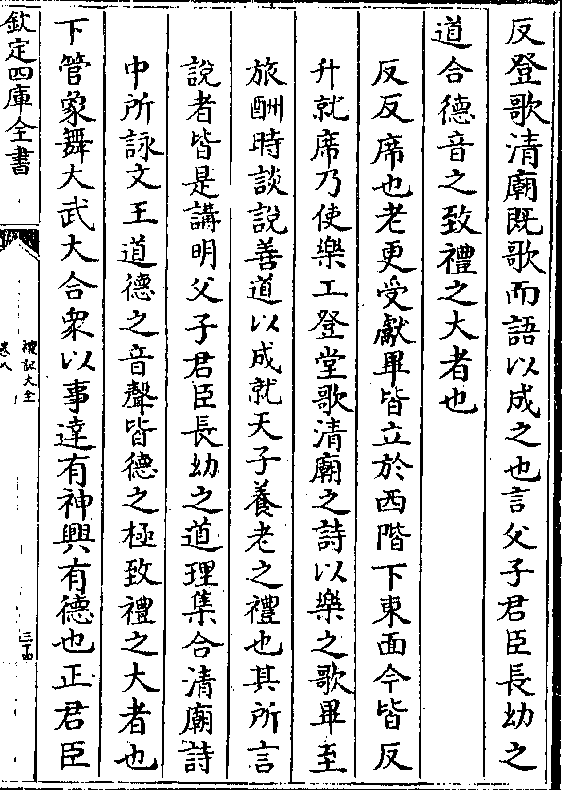 反登歌清廟既歌而語以成之也言父子君臣長幼之
道合德音之致禮之大者也
反反席也老更受獻畢皆立於西階下東面今皆反
升就席乃使樂工登堂歌清廟之詩以樂之歌畢至
旅酬時談說善道以成就天子養老之禮也其所言
說者皆是講明父子君臣長幼之道理集合清廟詩
中所詠文王道德之音聲皆德之極致禮之大者也
下管象舞大武大合衆以事達有神興有德也正君臣
欽定四庫全書
禮記大全
卷八
三十四